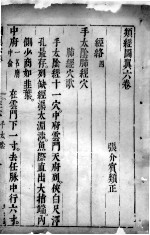 類經圖翼六卷
張介賓類正
經絡四
手太陰肺經穴
肺經穴歌
手太陰十一穴中府雲門天府列俠白尺澤
孔最存列缺經渠太淵涉魚際直出大指端內
側少商如韭葉
中府 在雲門下一寸去任脈中行六寸